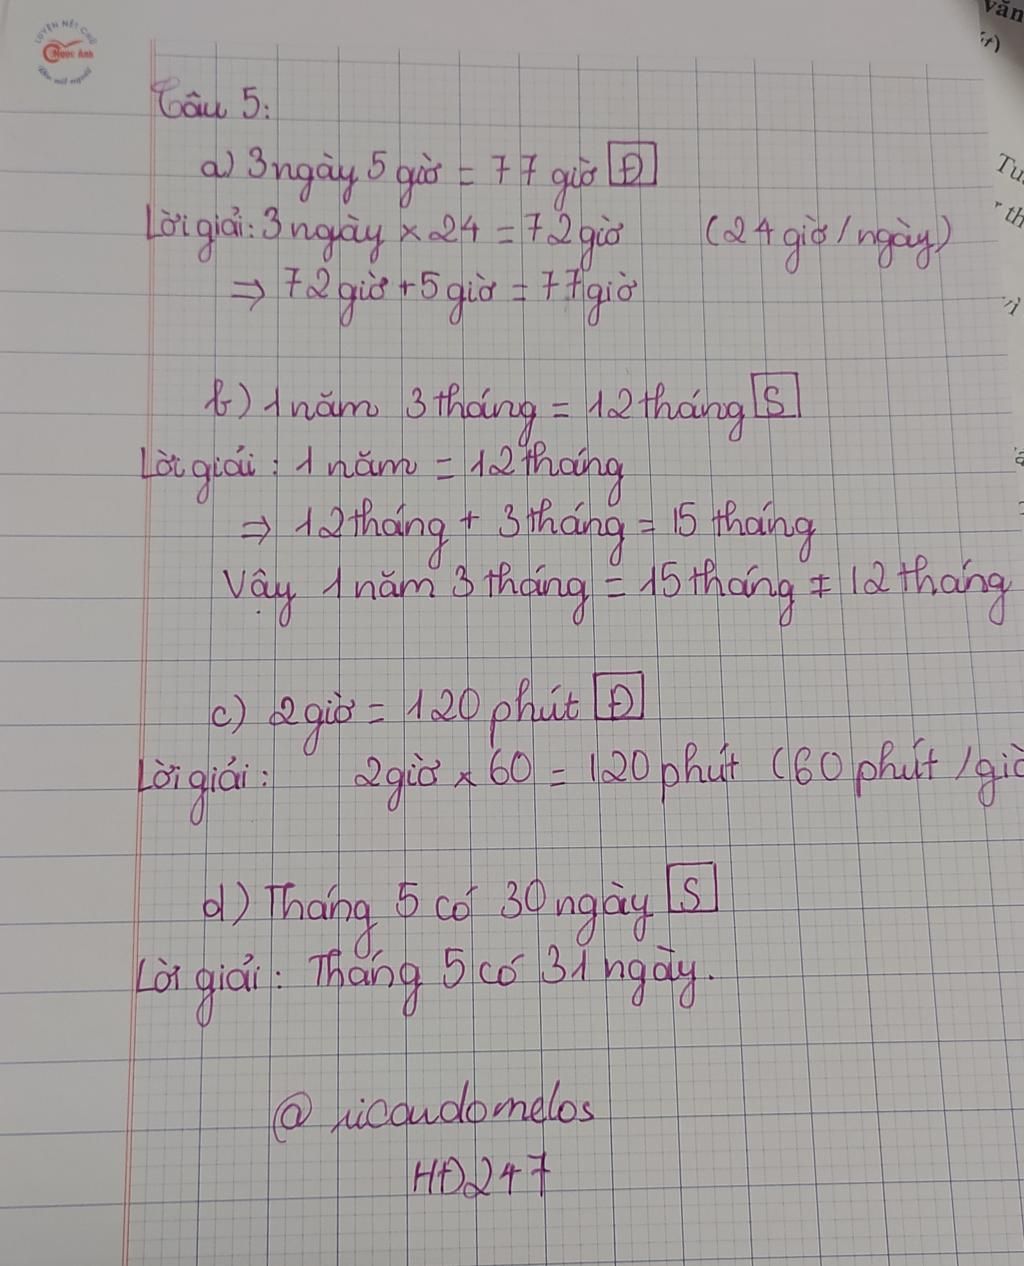 LUYỆN NÉT CHỮ
Ngọc Ánh
Rèn nết người
văn
Câu 5:
a) 3 ngày 5 giờ = 77 giờ Đ
Lời giải: 3 ngày × 24 = 72 giờ (24 giờ / ngày)
⇒ 72 giờ + 5 giờ = 77 giờ
b) 1 năm 3 tháng = 12 tháng S
Lời giải: 1 năm = 12 tháng
⇒ 12 tháng + 3 tháng = 15 tháng
Vậy 1 năm 3 tháng = 15 tháng ≠ 12 tháng
c) 2 giờ = 120 phút Đ
Lời giải: 2 giờ × 60 = 120 phút (60 phút / giờ
d) Tháng 5 có 30 ngày S
Lời giải: Tháng 5 có 31 ngày.
@ricaudomelos
HĐ247